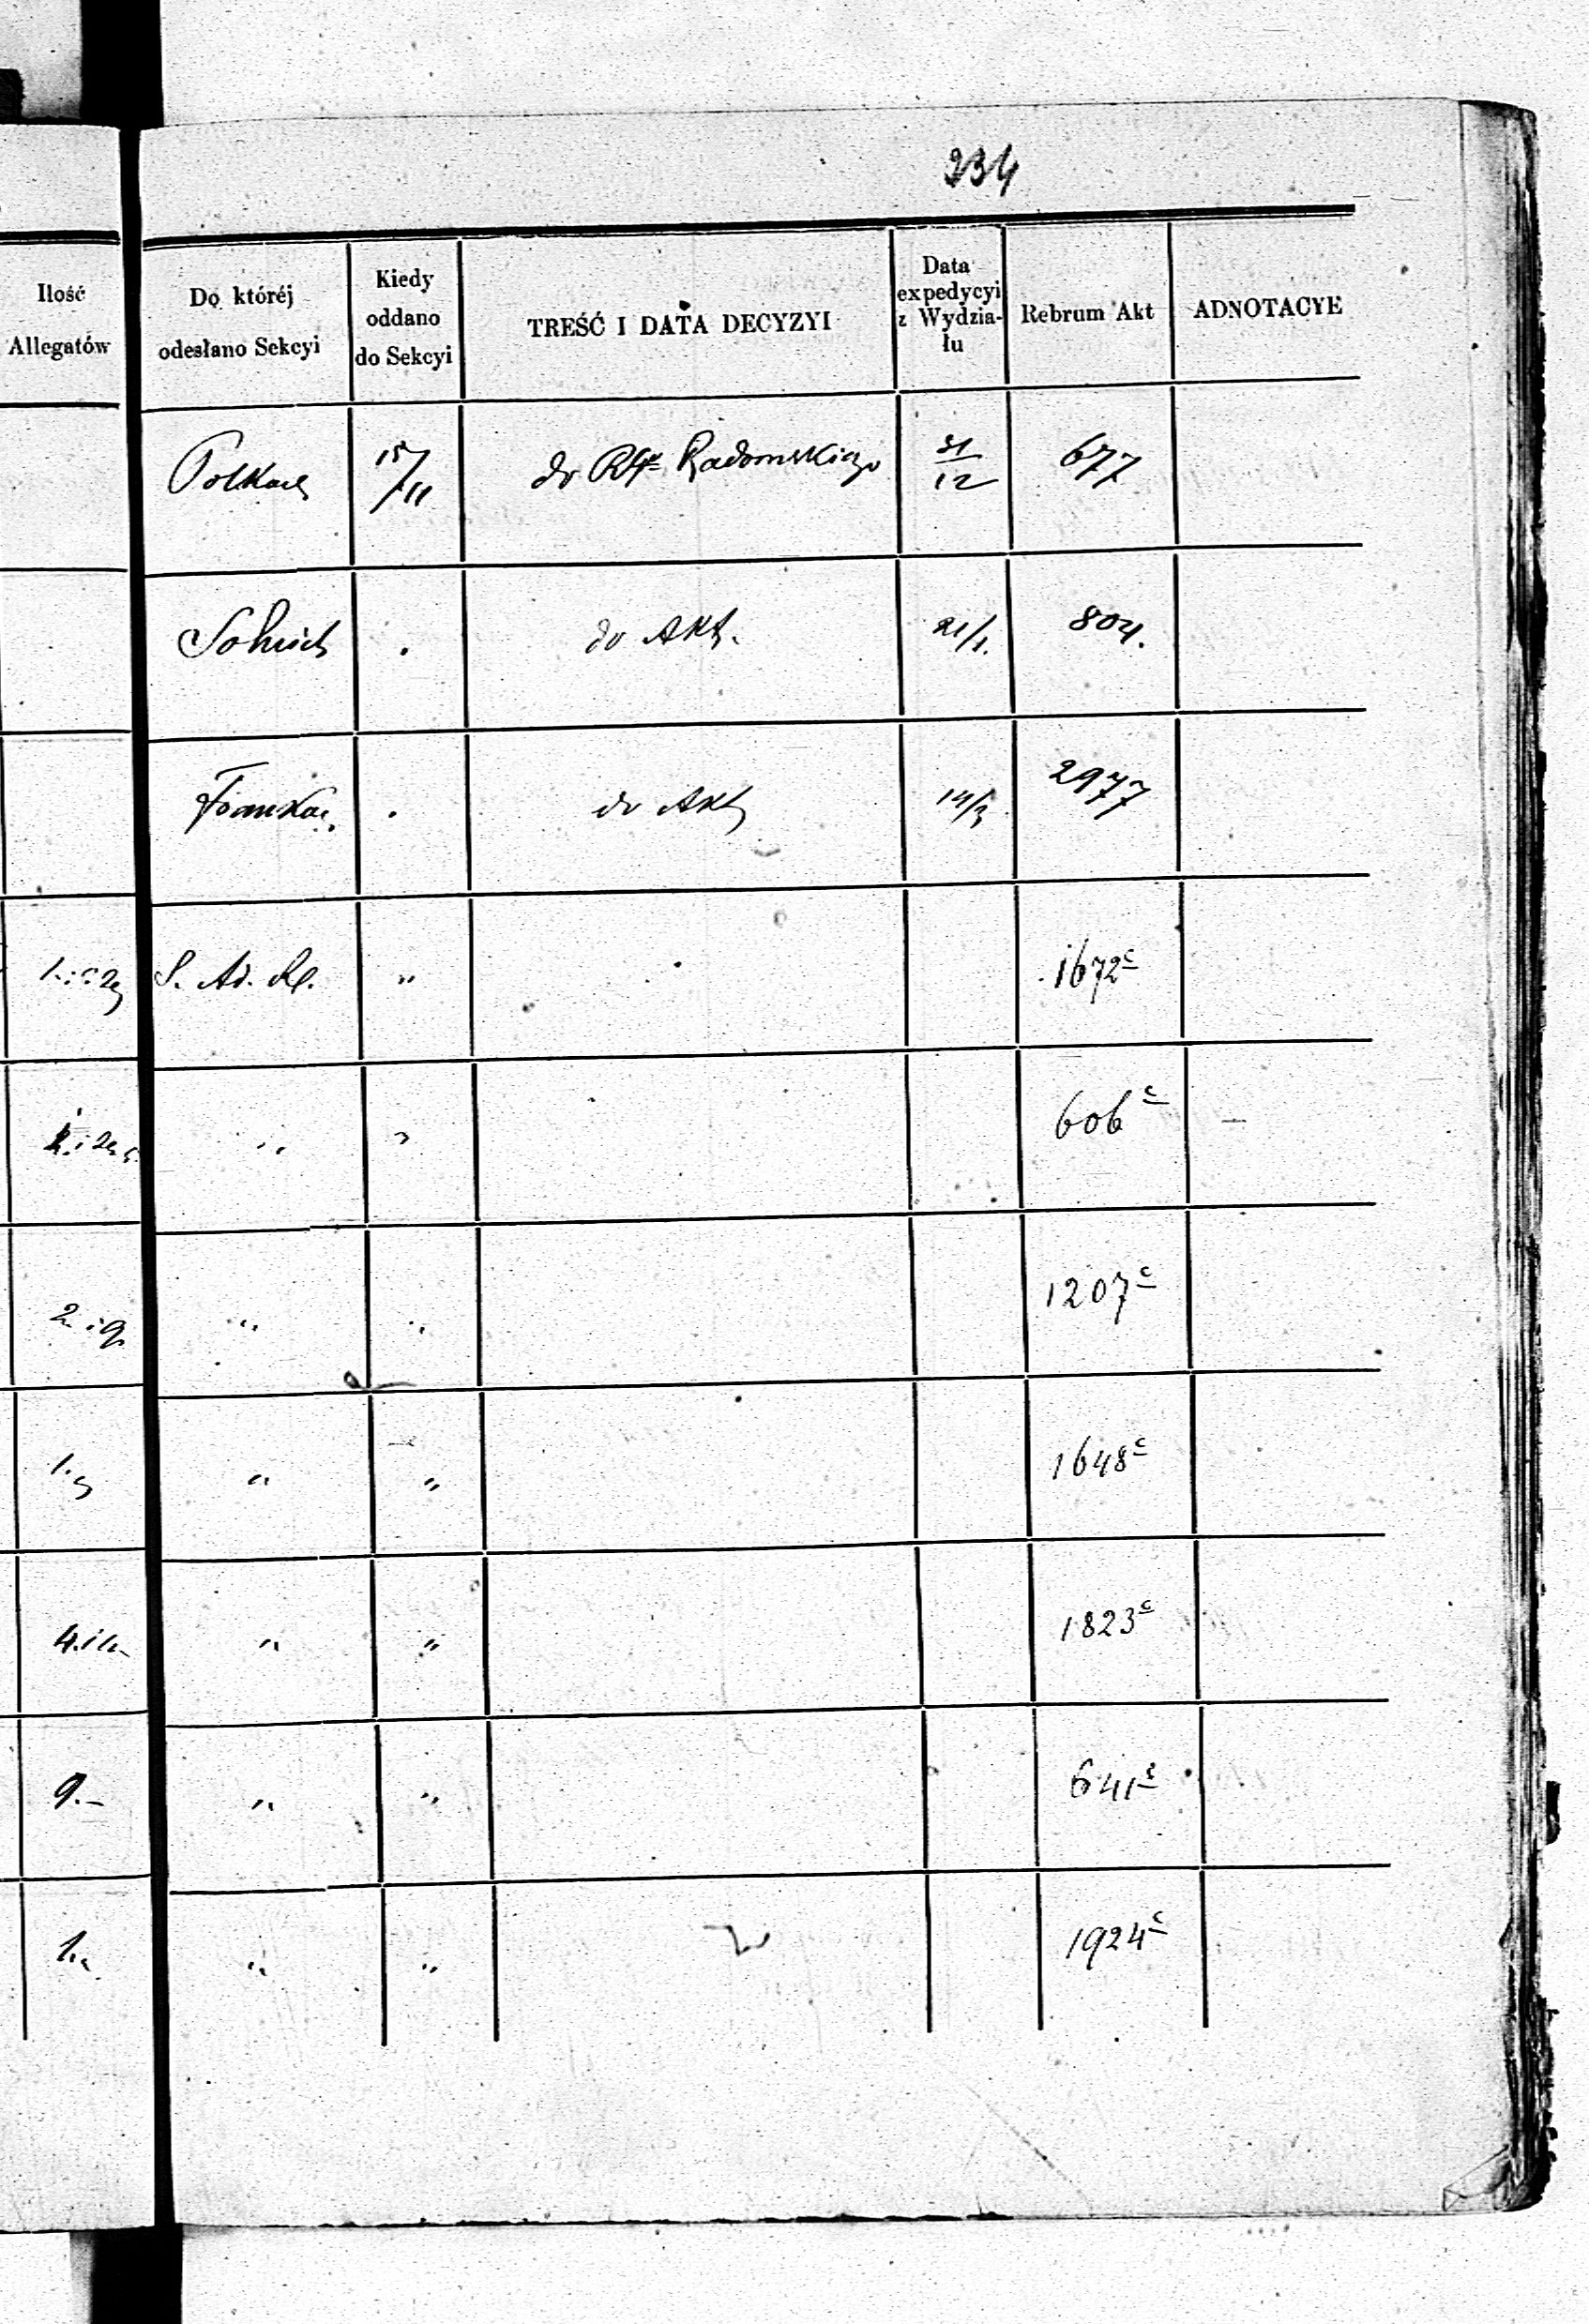 234
Ilość Allegatów
Do któréj odesłano Sekcyi
Kiedy oddano do Sekcyi
TREŚĆ I DATA DECYZYI
Data expedycyi z Wydziału
Rebrum Akt
ADNOTACYE
15/11 do Radomskiego 31/12 677
" do Akt. 21/1. 804.
" do Akt 14/3 2977
S. Ad. " 1672c
" " 606c
2 " " 1207c
1. " " 1648c
4. " " 1823c
9.– " " 641c
1. " " 1924c